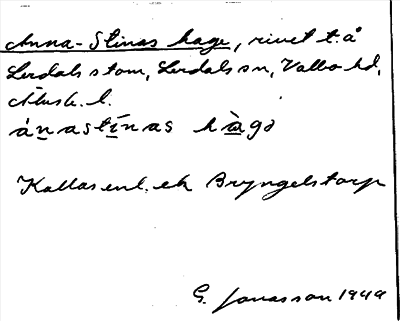 Anna-Stinas hage, rivet t. å
Lerdals stom, Lerdals sn, Valbo hd,
Älvsb. l.
ánastínas hàgə
Kallas enl. ek Bryngelstorp
G. Jonasson 1949